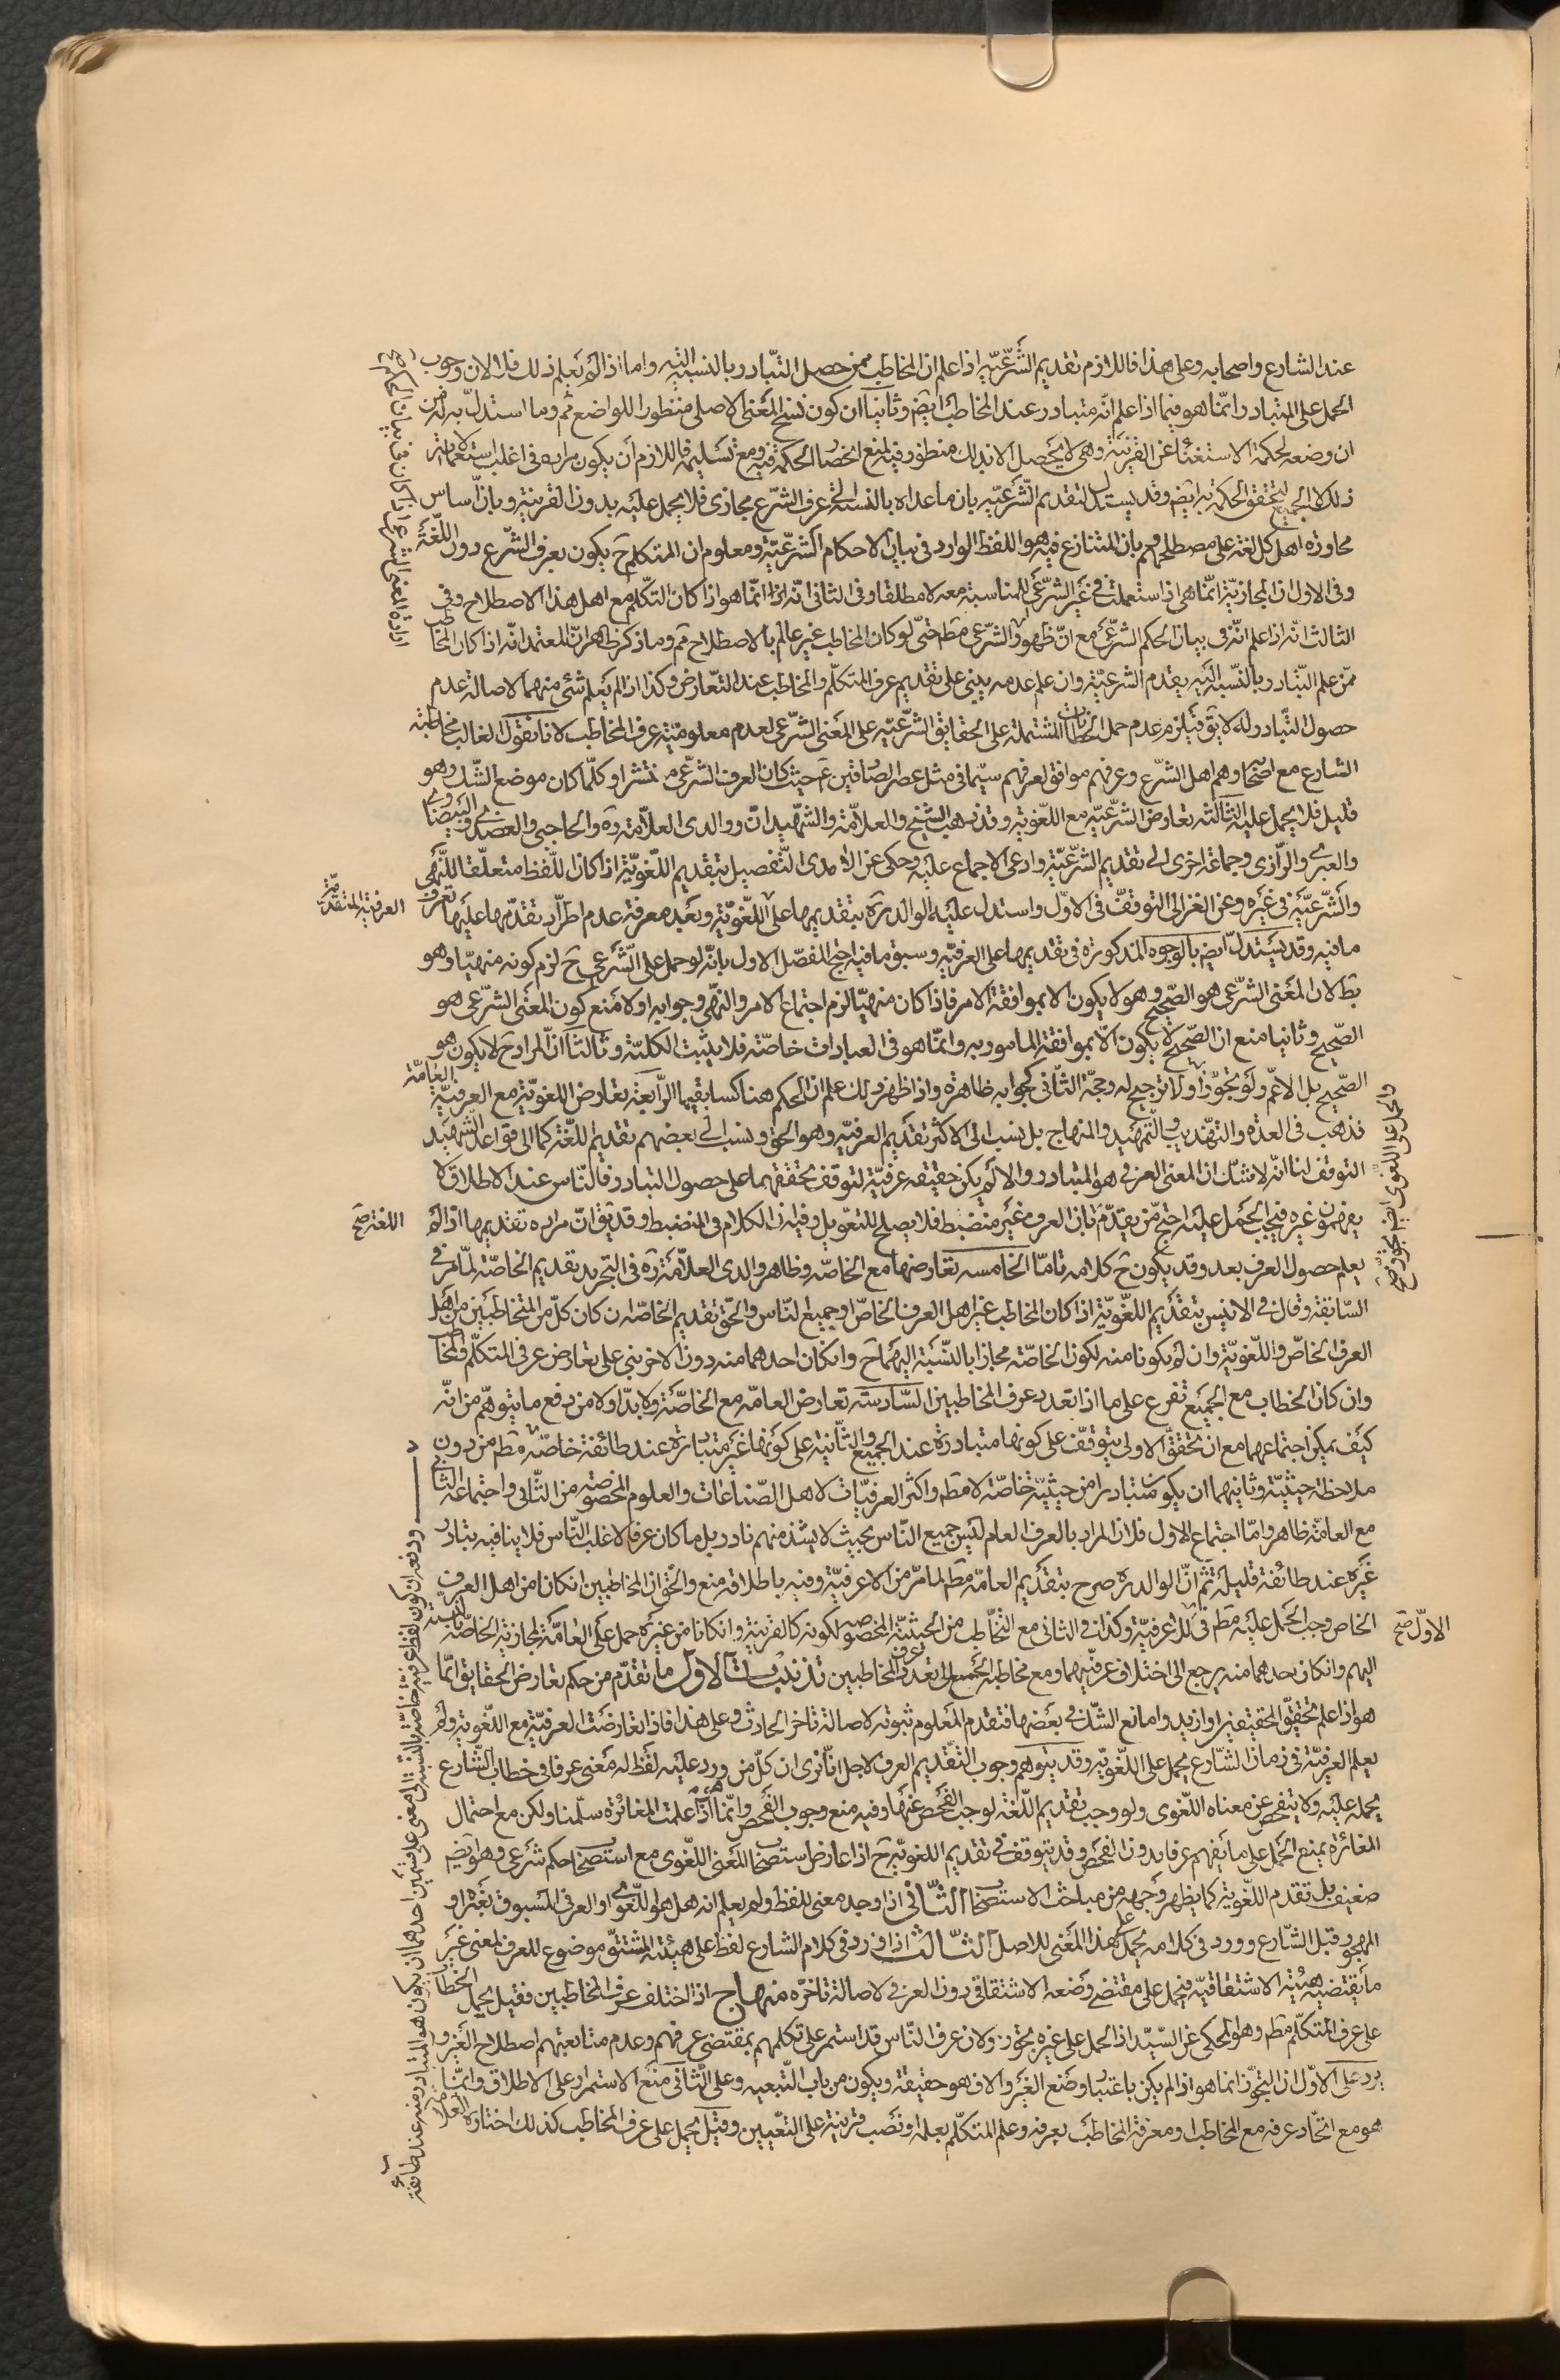 عند الشارع واصحابه وعلى هذا فاللازم تقديم الشّرعيّه اذا علم ان المخاطب ممن حصل التّبادر بالنسبة اليه واما اذا لم يعلم ذلك فلا لان وجوب
الحمل على المتبادر انّما هو فيما اذا علم انّه متبادر عند المخاطب ايضم وثانيا ان كون نسخ المعنى الاصلى منظورا للواضع مم وما استدلّ به له من
ان وضعه لحكمة الاستغناء عن القرينة وهى لا يحصل الا بذلك منظور فيه لمنع انحصار الحكمة فيه ومع تسليمه فاللازم ان يكون مراده فى اغلب استعمالاته
ذلك لا الجميع لتحقق الحكمة به ايضم وقد يستدل لتقديم الشّرعيّه بان ما عداه بالنسبة الى عرف الشّرع مجازى فلا يحمل عليه بدون القرينة وبانّ اساس
محاورة اهل كل لغة على مصطلحهم وبان المتنازع فيه هو اللفظ الوارد فى بيان الاحكام الشّرعيّة ومعلوم ان المتكلم ح يكون بعرف الشّرع دون اللّغة
وفى الاول ان المجازيّة انّما هى اذا استعملت فى غير الشّرعى للمناسبة معه لا مطلقا وفى الثانى انّه انّما هو اذا كان التكلّم مع اهل هذا الاصطلاح وفى
الثالث انّه اذا علم انّه فى بيان الحكم الشّرعى مع انّ ظهور الشّرعى مطم حتى لو كان المخاطب غير عالم بالاصطلاح مم وما ذكر ظاهر انّ المعتمد انّه اذا كان المخاطب
ممّن علم التّبادر بالنّسبة اليه يقدم الشرعيّة وان علم عدمه يبنى على تقديم عرف المتكلّم والمخاطب عند التّعارض وكذا اذا لم يعلم شئى منهما لاصالة عدم
حصول التّبادر له لا يق فيلزم عدم حمل الخطابات المشتملة على الحقايق الشّرعيّه على المعنى الشّرعى لعدم معلوميّة عرف المخاطب لانا نقول الغالب مخاطبة
الشارع مع اصحابه وهم اهل الشّرع وعرفهم موافق لعرفهم سيّما فى مثل عصر الصّادقين ع حيث كان العرف الشّرعى منتشرا وكلّما كان موضع الشّك وهو
قليل فلا يحمل عليه الثّالثة تعارض الشّرعيّه مع اللّغوية وقد ذهب الشيخ والعلاّمة والشّهيدان ووالدى العلاّمة ره والحاجبى والعضدى والبيضاوى
والعبرى والرّازى وجماعة اخرى الى تقديم الشّرعيّة وادعى الاجماع عليه وحكى عن الآمدى التّفصيل بتقديم اللّغويّة اذا كان اللّفظ متعلّقا للنّهى
والشّرعيّة فى غيره وعن الغزالى التوقّف فى الاوّل واستدل عليه الوالد ره بتقديمها على اللّغويّة وبعد معرفة عدم اطّراد تقدّمها عليها تعرف
ما فيه وقد يستدلّ ايضم بالوجوه المذكورة فى تقديمها على العرفيّه وسبق ما فيه احتج المفصّل الاول بانّه لو حمل على الشّرعى ح لزم كونه منهيّا وهو
بط لان المعنى الشّرعى هو الصّحيح وهو لا يكون الا بموافقة الامر فاذا كان منهيّا لزم اجتماع الامر والنّهى وجوابه اولا منع كون المعنى الشّرعى هو
الصّحيح وثانيا منع ان الصّحيح لا يكون الاّ بموافقة المامور به وانّما هو فى العبادات خاصّة فلا يثبت الكليّة وثالثا انّ المراد ح لا يكون هو
الصّحيح بل الاعمّ ولو تجوّزا ولا ترجيح له وحجّة الثّانى كجوابه ظاهرة واذا ظهر ذلك علم ان الحكم هنا كسابقيها الرّابعة تعارض اللغويّة مع العرفيّة العامّة
فذهب فى العدة والتهذيب والتّمهيد والمنهاج بل نسب الى الاكثر تقديم العرفيّه وهو الحق ونسب الى بعضهم تقديم اللّغة كما الى قواعد الشّهيد
التوقف لنا انّه لا شكّ ان المعنى العرفى هو المتبادر والا لم يكن حقيقة عرفيّة لتوقف تحققها على حصول التبادر فالنّاس عند الاطلاق لا
يفهمون غيره فيجب الحمل عليه احتج من يقدّم بان العرف غير منضبط فلا يصلح للتعويل وفيه ان الكلام فى المنضبط وقد يق انّ مراده تقديمها اذا لم
يعلم حصول العرف بعد وقد يكون ح كلامه تامّا الخامسه تعارضها مع الخاصّه وظاهر والدى العلاّمة ره فى التجريد تقديم الخاصّة لما مرّ فى
السّابقة وقال فى الانيس بتقديم اللّغويّة اذا كان المخاطب غير اهل العرف الخاصّ او جميع النّاس والحقّ تقديم الخاصّة ان كان كلّ من المتخاطبين من اهل
العرف الخاصّ واللّغويّة وان لم يكونا منه لكون الخاصّة مجازا بالنّسبة اليهما ح وان كان احدهما منه دون الاخر يبنى على تعارض عرفى المتكلّم والمخاطب
وان كان الخطاب مع الجميع تفرع على ما اذا تعدد عرف المخاطبين السّادسة تعارض العامّه مع الخاصّة ولا بدّ اولا من دفع ما يتوهّم من انّه
كيف يمكن اجتماعهما مع ان تحقّق الاولى يتوقّف على كونها متبادرة عند الجميع والثّانية على كونها غير متبادرة عند طائفة خاصّة مطم من دون
ملاحظة حيثيّة وثانيهما ان يكون متبادرا من حيثيّة خاصّة لا مطم واكثر العرفيّات لاهل الصّناعات والعلوم المخصوصة من الثّانى واجتماعه
مع العامّة ظاهر وامّا اجتماع الاول فلان المراد بالعرف العام ليس جميع النّاس بحيث لا يشذ منهم نادر بل ما كان عرفا لاغلب النّاس فلا ينافيه تبادر
غيره عند طائفة قليلة ثمّ انّ الوالد ره صرح بتقديم العامّه مطم لما مرّ من الاعرفيّة وفيه باطلاقه منع والحق ان المخاطبين ان كانا من اهل العرف
الخاص وجب الحمل عليه مطم فى للاعرفيّة وكذا فى الثانى مع التّخاطب من الحيثيّة المخصوصة لكونه كالقرينة وان كانا من غيره حمل على العامّة لمجازية الخاصّة بالنسبة
اليهم وان كان احدهما منه يرجع الى اختلاف عرفيهما ومع مخاطبة الجميع الى تعدد عرف المخاطبين تذنيبات الاول ما تقدّم من حكم تعارض الحقايق انّما
هو اذا علم تحقّق الحقيقتين او ازيد واما مع الشّك فى بعضها فتقدم المعلوم ثبوته لاصالة تاخر الحادث وعلى هذا فاذا تعارضت العرفيّة مع اللّغوية ولم
يعلم العرفيّة فى زمان الشّارع يحمل على اللّغويّه وقد يتوهم وجوب التّقديم العرف لاجل انّا نرى ان كلّ من ورد عليه لفظ له معنى عرفا فى خطاب الشّارع
يحمله عليه ولا يتفحص عن معناه اللّغوى ولو وجب تقديم اللّغة لوجب الفحص عنها وفيه منع وجوب الفحص وانّما هو اذا علمت المغائرة سلّمنا ولكن مع احتمال
المغائرة يمنع الحمل على ما يفهم عرفا بدون الفحص وقد يتوقف فى تقديم اللغويّة ح اذا عارض استصحاب المعنى اللّغوى مع استصحاب حكم شرعى وهو ايضم
ضعيف بل تقدم اللّغوية كما يظهر وجهه من مباحث الاستصحاب الثّانى اذا وجد معنى للفظ ولم يعلم انه هل هو اللّغوى او العرفى المسبوق بغيره او
المهجور قبل الشّارع وورد فى كلامه يحمل على هذا المعنى للاصل الثّالث اذا ورد فى كلام الشارع لفظ على هيئة المشتق موضوع للعرف لمعنى غير
ما يقتضيه هيئته الاشتقاقيّة فيحمل على مقتضى وضعه الاشتقاقى دون العرفى لاصالة تاخّره منهاج اذا اختلف عرف المخاطبين فقيل يحمل الخطاب
على عرف المتكلّم مطم وهو المحكى عن السّيّد اذ الحمل على غيره تجوّز ولان عرف النّاس قد استمر على تكلّمهم بمقتضى عرفهم وعدم متابعتهم اصطلاح الغير و
يرد على الاوّل ان التجوّز انما هو اذا لم يكن باعتبار وضع الغير والا فهو حقيقة ويكون من باب التّبعيه وعلى الثّانى منع الاستمرار على الاطلاق وانّما
هو مع اتّحاد عرفه مع المخاطب او معرفة المخاطب بعرفه وعلم المتكلّم بعلمه او نصب قرينة على التعّيين وقيل يحمل على عرف المخاطب كذلك اختاره العلا
العرفية المتقدّمة
اللغة صح
الاولّ صح
والحمل على اللغوى ايضم تجوّز صح